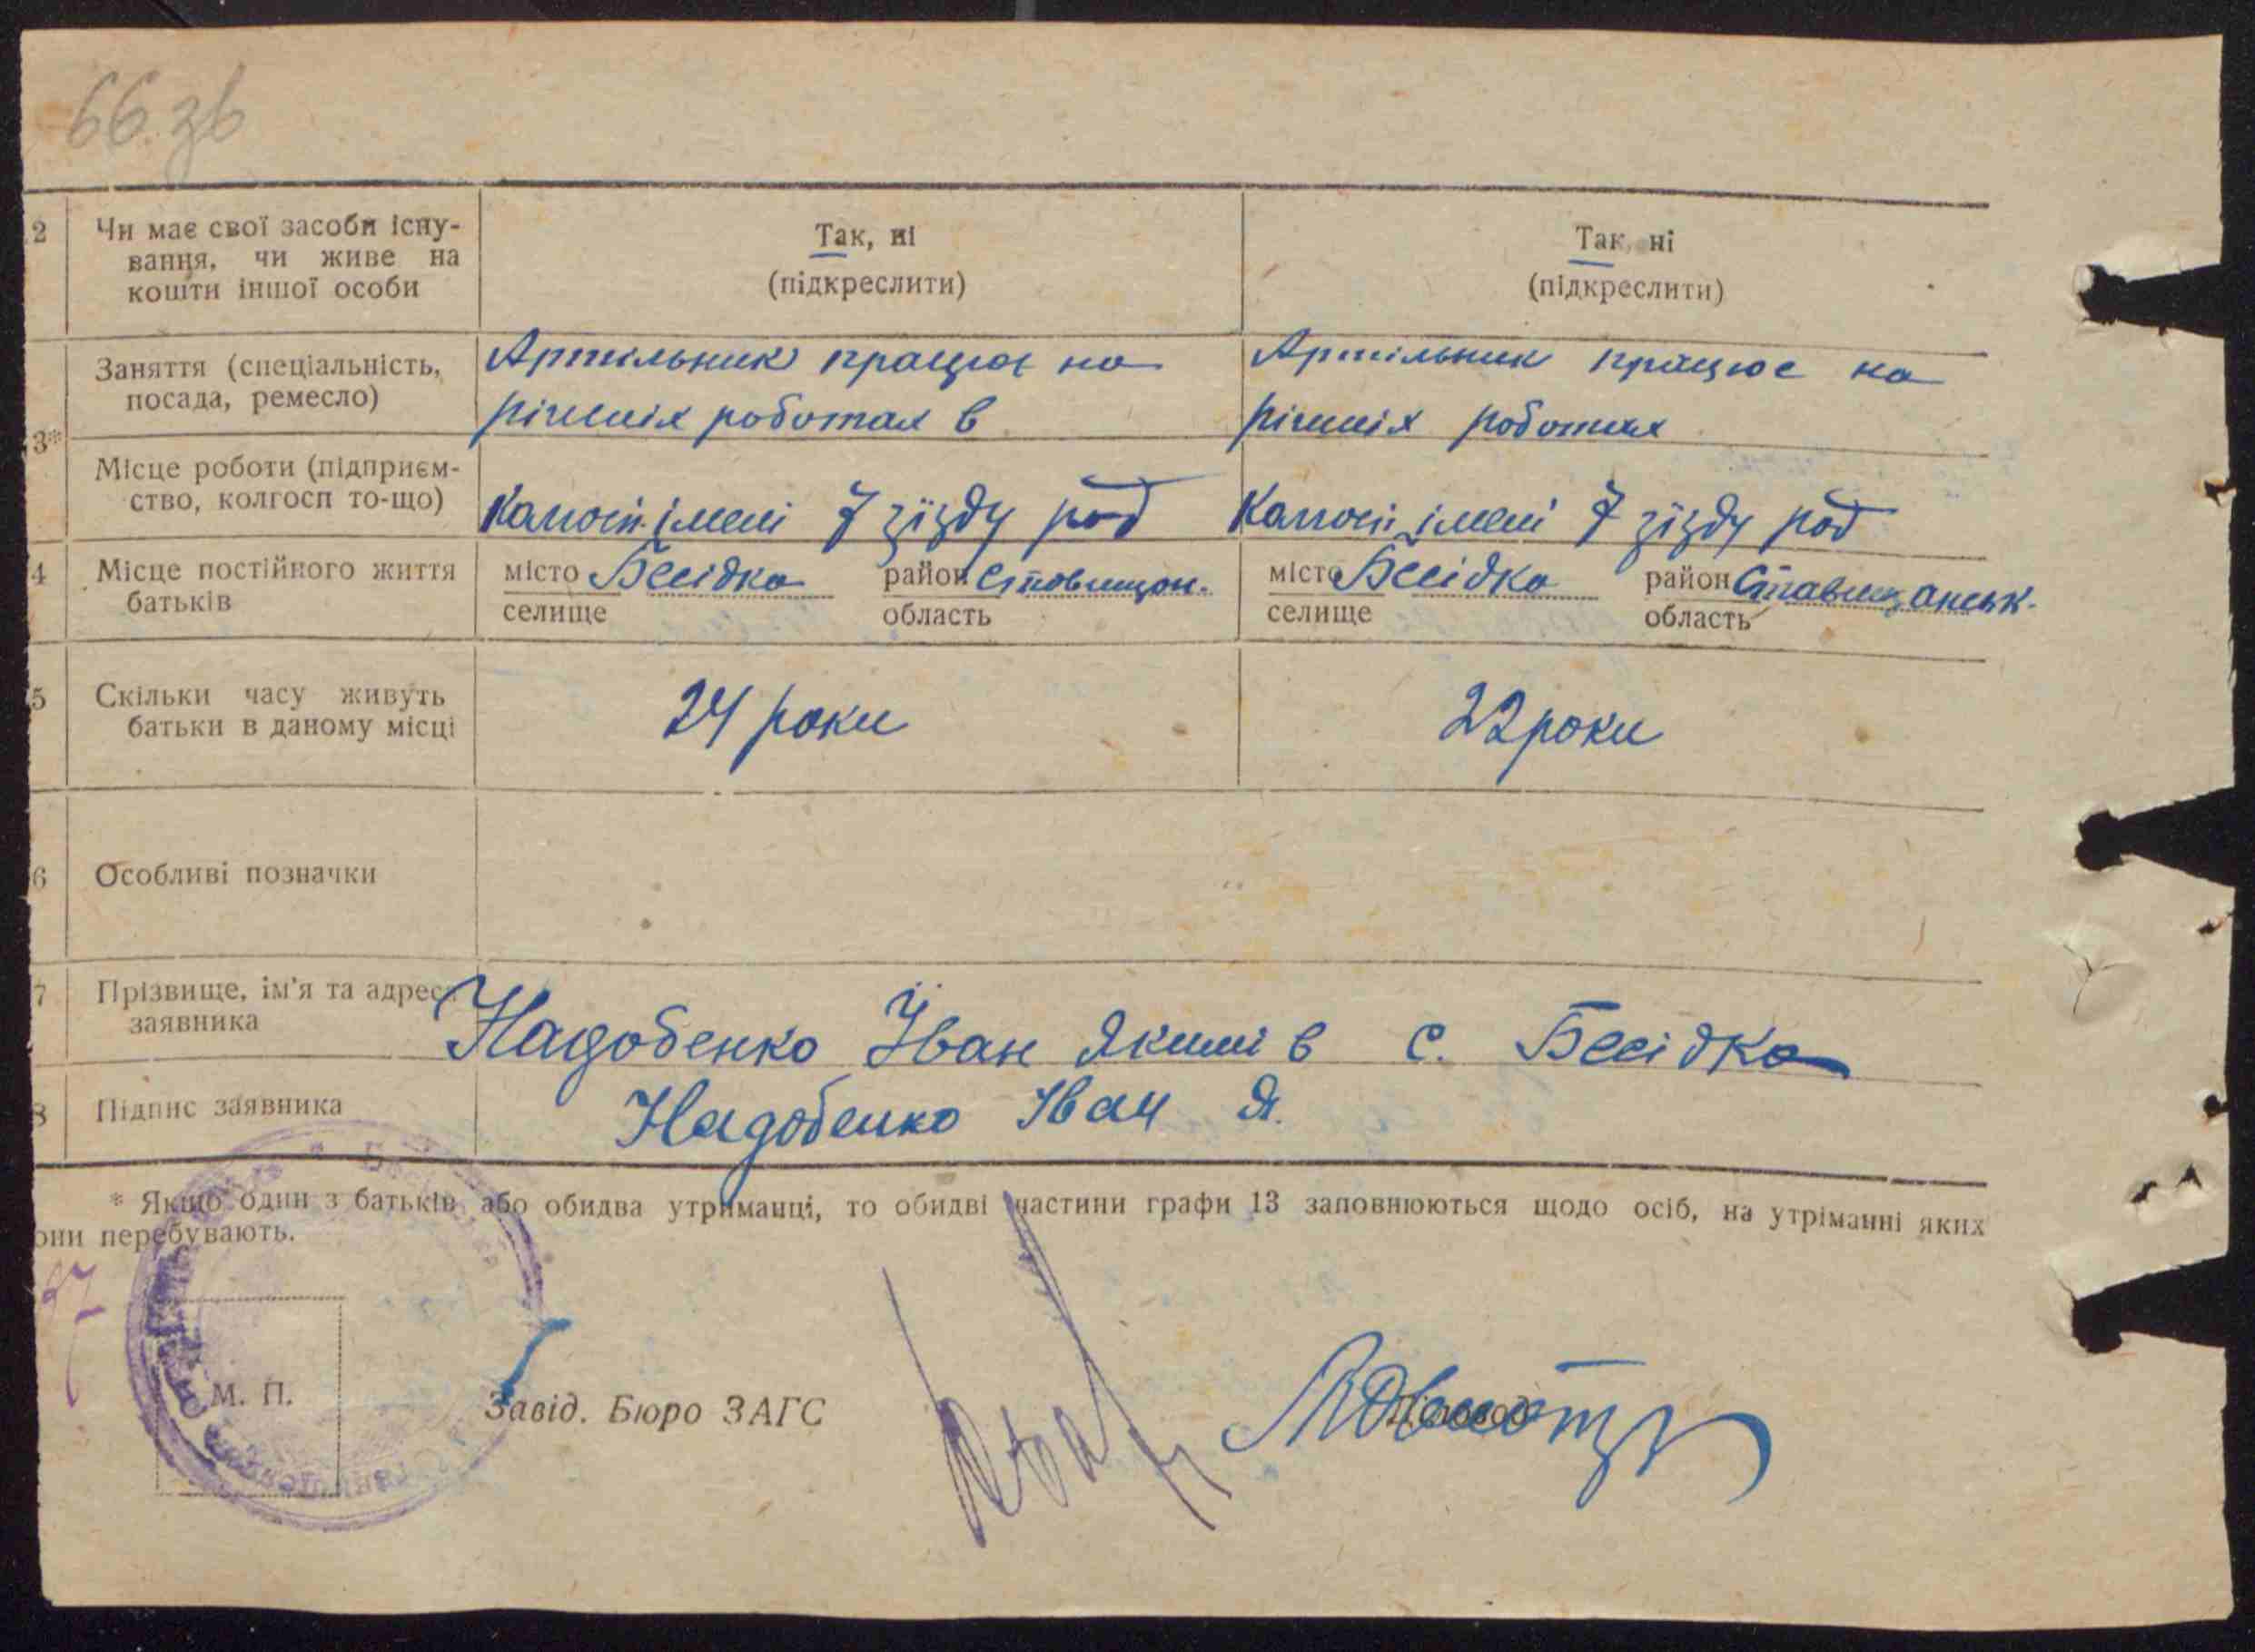 66 зв
2 Чи має свої засоби існу-
вання, чи живе на
кошти іншої особи
Так, ні
(підкреслити)
Так, ні
(підкреслити)
3*
Заняття (спеціальність,
посада, ремесло)
Артільник працює на
ріжних роботах в
Артільник працює на
ріжних роботах
Місце роботи (підприєм-
ство, колгосп то-що)
імені 7 зїзду рад
імені 7 зїзду рад
4 Місце постійного життя
батьків
місто Бесідка район Ставищан.
селище область
місто Бесідка район Ставищанськ.
селище область
5 Скільки часу живуть
батьки в даному місці
24 роки
22 роки
6 Особливі позначки
7 Прізвище, ім'я та адреса
заявника
Надобенко Іван Якимів с. Бесідка
8 Підпис заявника
Надобенко Іван Я.
* Якщо один з батьків або обидва утриманці, то обидві частини графи 13 заповнюються щодо осіб, на утріманні яких
они перебувають.
М. П.
Завід. Бюро ЗАГС
Діловод